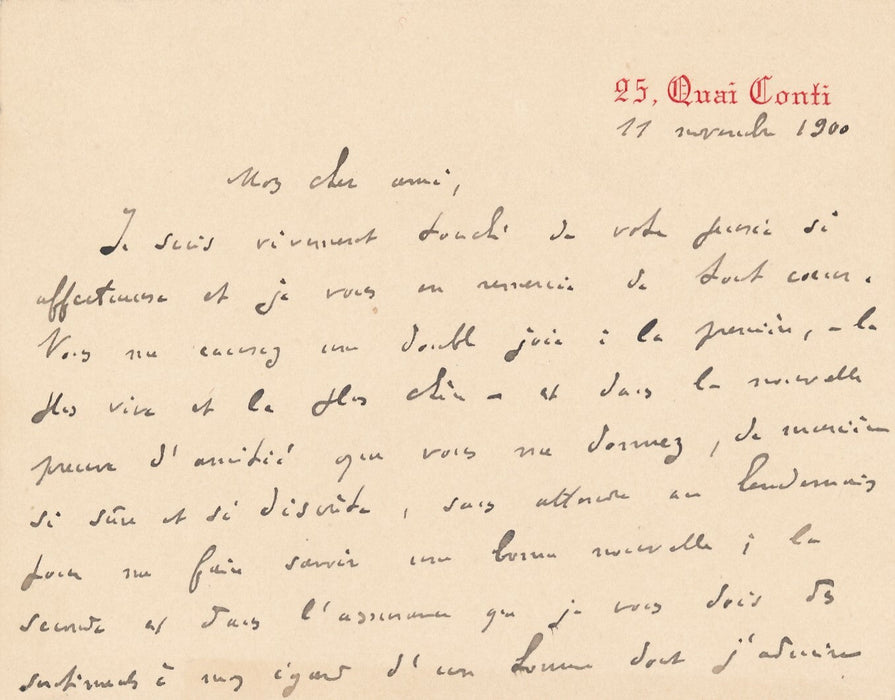 25, Quai Conti
11 novembre 1900
Mon cher ami,
Je suis vivement touché de votre pensée si
affectueuse et je vous en remercie de tout coeur.
Vous me causez une double joie : la première, – la
plus vive et la plus chère – est dans la nouvelle
preuve d'amitié que vous me donnez, de manière
si sûre et si discrète, sans attendre au lendemain
pour me faire savoir une bonne nouvelle ; la
seconde est dans l'assurance que je vous dois des
sentiments à mon égard d'un homme dont j'admire